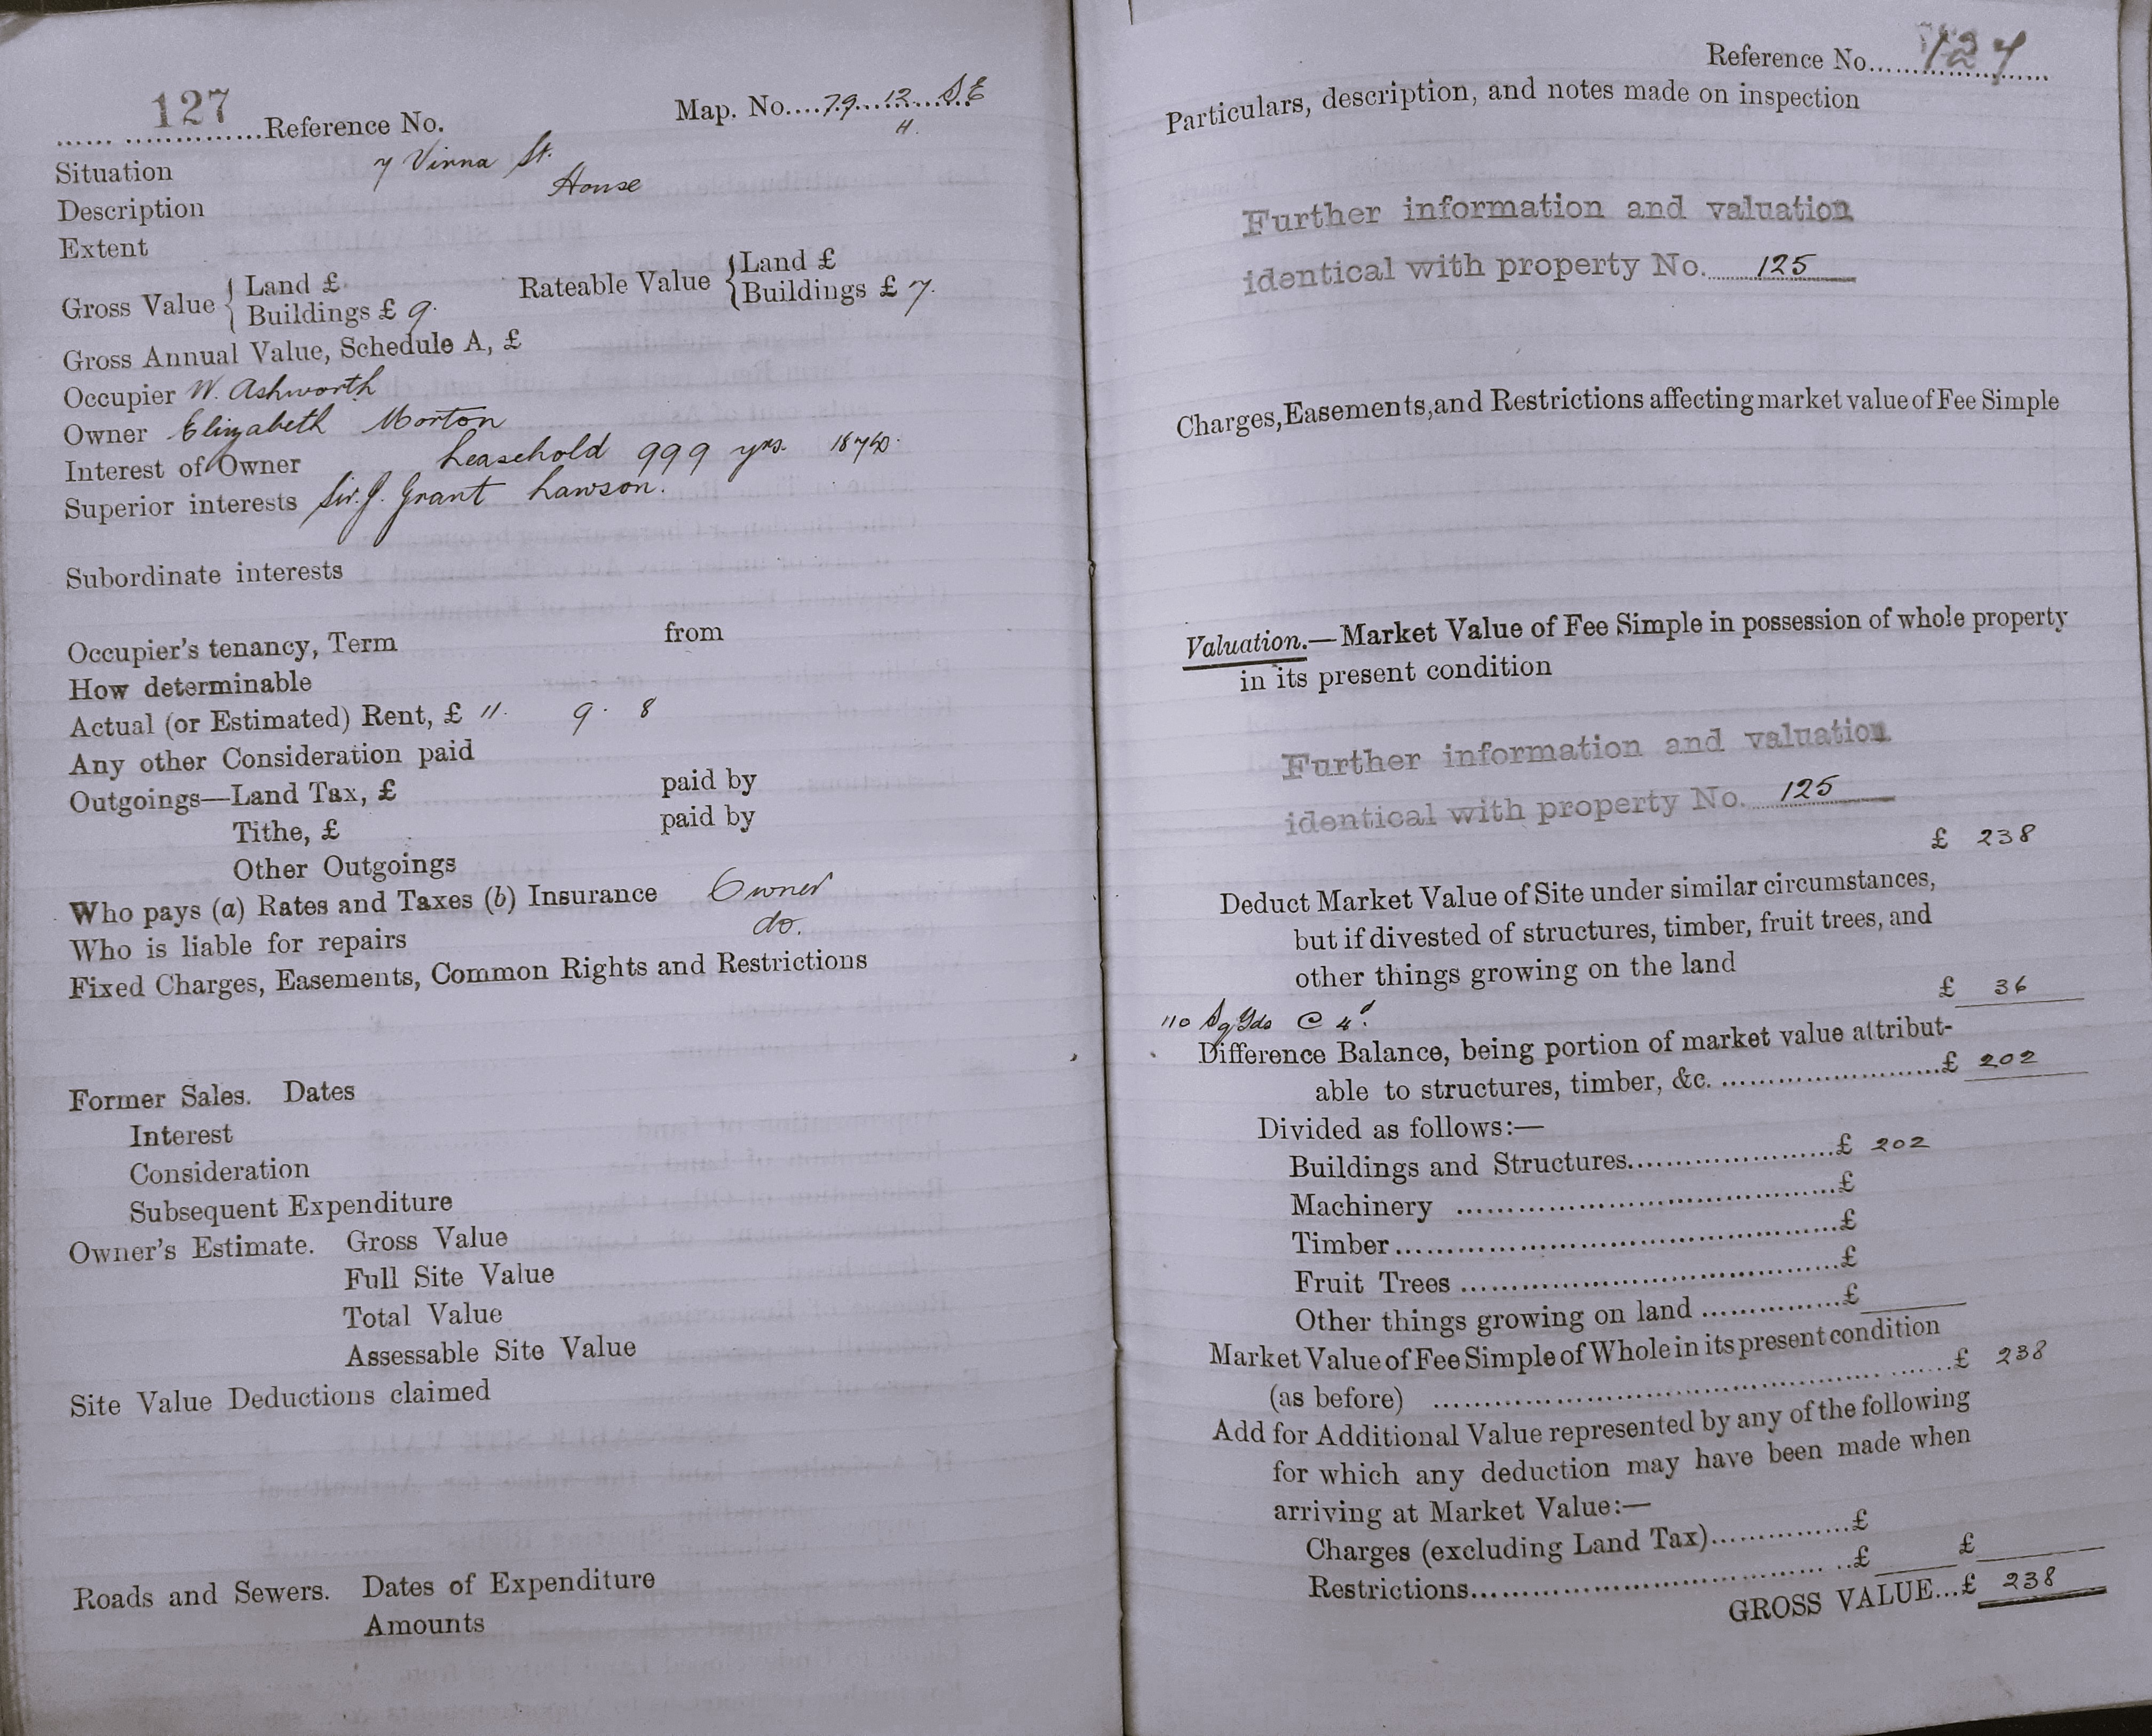 127
Reference No.
Map. No....79...12...S.E
H.
Situation 7 Vinna St.
Description House
Extent
Gross Value { Land £
Buildings £ 9.
Rateable Value { Land £
Buildings £ 7.
Gross Annual Value, Schedule A, £
Occupier W. Ashworth
Owner Elizabeth Morton
Interest of Owner Leasehold 999 yrs.
Superior interests Sir. J. Grant Lawson.
Subordinate interests
Occupier's tenancy, Term from
How determinable
Actual (or Estimated) Rent, £ 11. 9. 8
Any other Consideration paid
Outgoings—Land Tax, £ paid by
Tithe, £ paid by
Other Outgoings
Who pays (a) Rates and Taxes (b) Insurance Owner
Who is liable for repairs do.
Fixed Charges, Easements, Common Rights and Restrictions
Former Sales. Dates
Interest
Consideration
Subsequent Expenditure
Owner's Estimate. Gross Value
Full Site Value
Total Value
Assessable Site Value
Site Value Deductions claimed
Roads and Sewers. Dates of Expenditure
Amounts
Reference No. 127
Particulars, description, and notes made on inspection
Further information and valuation
identical with property No. 125
Charges, Easements, and Restrictions affecting market value of Fee Simple
Valuation.—Market Value of Fee Simple in possession of whole property
in its present condition
Further information and valuation
identical with property No. 125
£ 238
Deduct Market Value of Site under similar circumstances,
but if divested of structures, timber, fruit trees, and
other things growing on the land
£ 36
110 Sq Yds @ 4d.
Difference Balance, being portion of market value attribut-
able to structures, timber, &c. £ 202
Divided as follows:—
Buildings and Structures £ 202
Machinery £
Timber £
Fruit Trees £
Other things growing on land £
Market Value of Fee Simple of Whole in its present condition
(as before) £ 238
Add for Additional Value represented by any of the following
for which any deduction may have been made when
arriving at Market Value:—
Charges (excluding Land Tax) £
Restrictions £ £
GROSS VALUE...£ 238